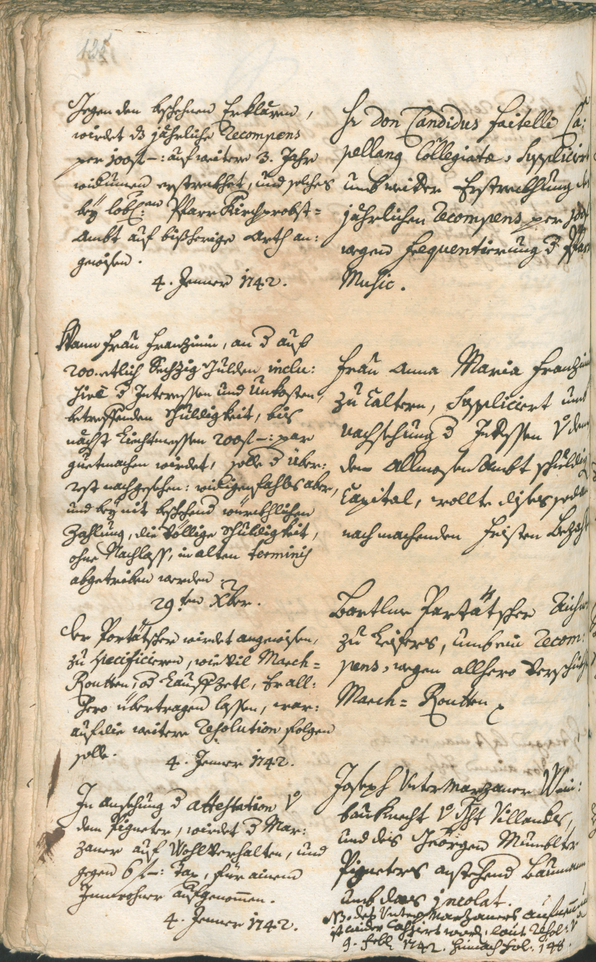 125
Gegen den beschehnen Erklären,
wirdet dz jährliche Recompens
per 100 fl -: auf weitere 3. Jahr
widumen erstreckhet, und solches
bey lobl: Pfarr Kirchprobst=
Ambt auf bißherige Arth an:
gewisen.
4. Jenner 1742.
Hr Don Candidus Faitelli Ca:
pellang Collegiate, Suppliciert
umb weitere Erstreckhung des
jährlichen Recompens per 100 fl
wegen frequentierung d Pfarr
Music.
Wann Frau Franzinin, an d auf
200. etlich Sechzig Gulden inclu:
sive d Interessen und Unkosten
betreffenden Schuldigkeit, bis
nechst Liechtmessen 200 fl -: par
guetmachen wirdet, solle d über:
rest nachgesehen: widrigenfahls aber,
und bey nit beschehend würcklichen
Zahlung, die völlige Schuldigkeit,
ohne Nachlass, in alten terminis
abgetriben werden
29.ten Xber.
Frau Anna Maria Franzin
zu Caltern, Suppliciert umb
nachsehung d Intessen v dem
dem Allmosen Ambt schuldig
Capital, wollte dises
nach machenden Fristen Bezahl
Der Portätscher wirdet angewisen,
zu specificieren, wie vil March=
Routten, d Kauffzetl, Er all:
hero übertragen lassen, war:
auf die weitere Resolution folgen
solle.
4. Jenner 1742.
Bartlme Partätscher
zu Leifers, umb ein Recom:
pens, wegen allhero
March= Routten
In ansehung d attestation v
dem Pigneter, wirdet d Mar:
zaner auf Wohlverhalten, und
gegen 6 f -: Tax, für einem
Innwohner aufgenommen.
4. Jenner 1742.
Joseph Untermarzaner Wein:
bauknecht v Villanders,
und des Geörgen
Pigneters anstehend Baumann
umb das incolat.
NB. des Untermarzaners
ist wider Cassiert word, laut Resol: v
9. Feb 1742. hinach fol. 148.